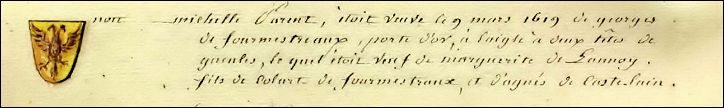 nott michelle Parent, étoit veuve le 9 mars 1619 de georges
de fourmestreaux, porte d'or, à l'aigle à deux têtes de
gueules, le quel étoit veuf de marguerite de Lannoy.
fils de colart de fourmestraux, et d'agnés de Castelain.